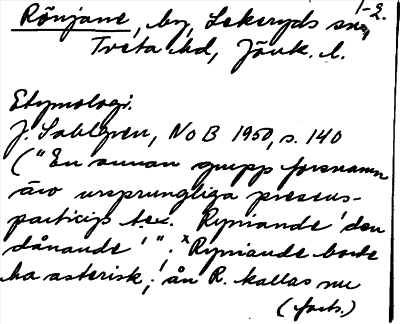 1-2.
Rönjane, by, Lekeryds sn,
Tveta hd, Jönk. l.
Etymologi.
J. Sahlgren, NoB 1950, s. 140
("En annan grupp forsnamn
äro ursprungliga presens-
particip t.ex. Rymiande 'den
dånande'"; ˣRymiande borde
ha asterisk; ån R. kallas nu
(forts.)